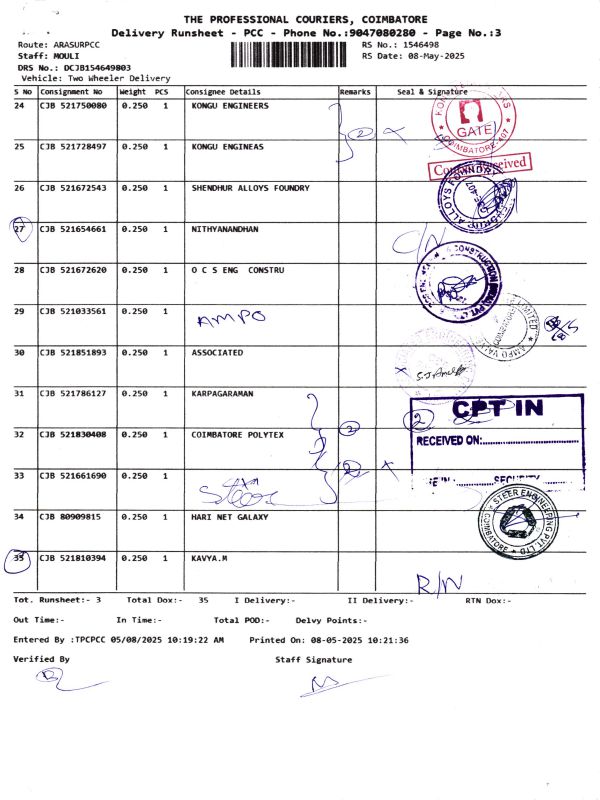 THE PROFESSIONAL COURIERS, COIMBATORE
Delivery Runsheet - PCC - Phone No.:9047080280 - Page No.:3
Route: ARASURPCC RS No.: 1546498
Staff: MOULI RS Date: 08-May-2025
DRS No.: DCJB154649803
Vehicle: Two Wheeler Delivery
S No Consignment No Weight PCS Consignee Details Remarks Seal & Signature
24 CJB 521750080 0.250 1 KONGU ENGINEERS 2 X
GATE
COIMBATORE-407
25 CJB 521728497 0.250 1 KONGU ENGINEAS
26 CJB 521672543 0.250 1 SHENDHUR ALLOYS FOUNDRY
27 CJB 521654661 0.250 1 NITHYANANDHAN C/N
28 CJB 521672620 0.250 1 O C S ENG CONSTRU
29 CJB 521033561 0.250 1 AMPO
30 CJB 521851893 0.250 1 ASSOCIATED X
31 CJB 521786127 0.250 1 KARPAGARAMAN
2 CPT IN
32 CJB 521830408 0.250 1 COIMBATORE POLYTEX
RECEIVED ON:
33 CJB 521661690 0.250 1 Steer X
SECURITY
34 CJB 80909815 0.250 1 HARI NET GALAXY
STEER ENGINEERING PVT. LTD
COIMBATORE
35 CJB 521810394 0.250 1 KAVYA.M
R/N
Tot. Runsheet:- 3 Total Dox:- 35 I Delivery:- II Delivery:- RTN Dox:-
Out Time:- In Time:- Total POD:- Delvy Points:-
Entered By :TPCPCC 05/08/2025 10:19:22 AM Printed On: 08-05-2025 10:21:36
Verified By Staff Signature